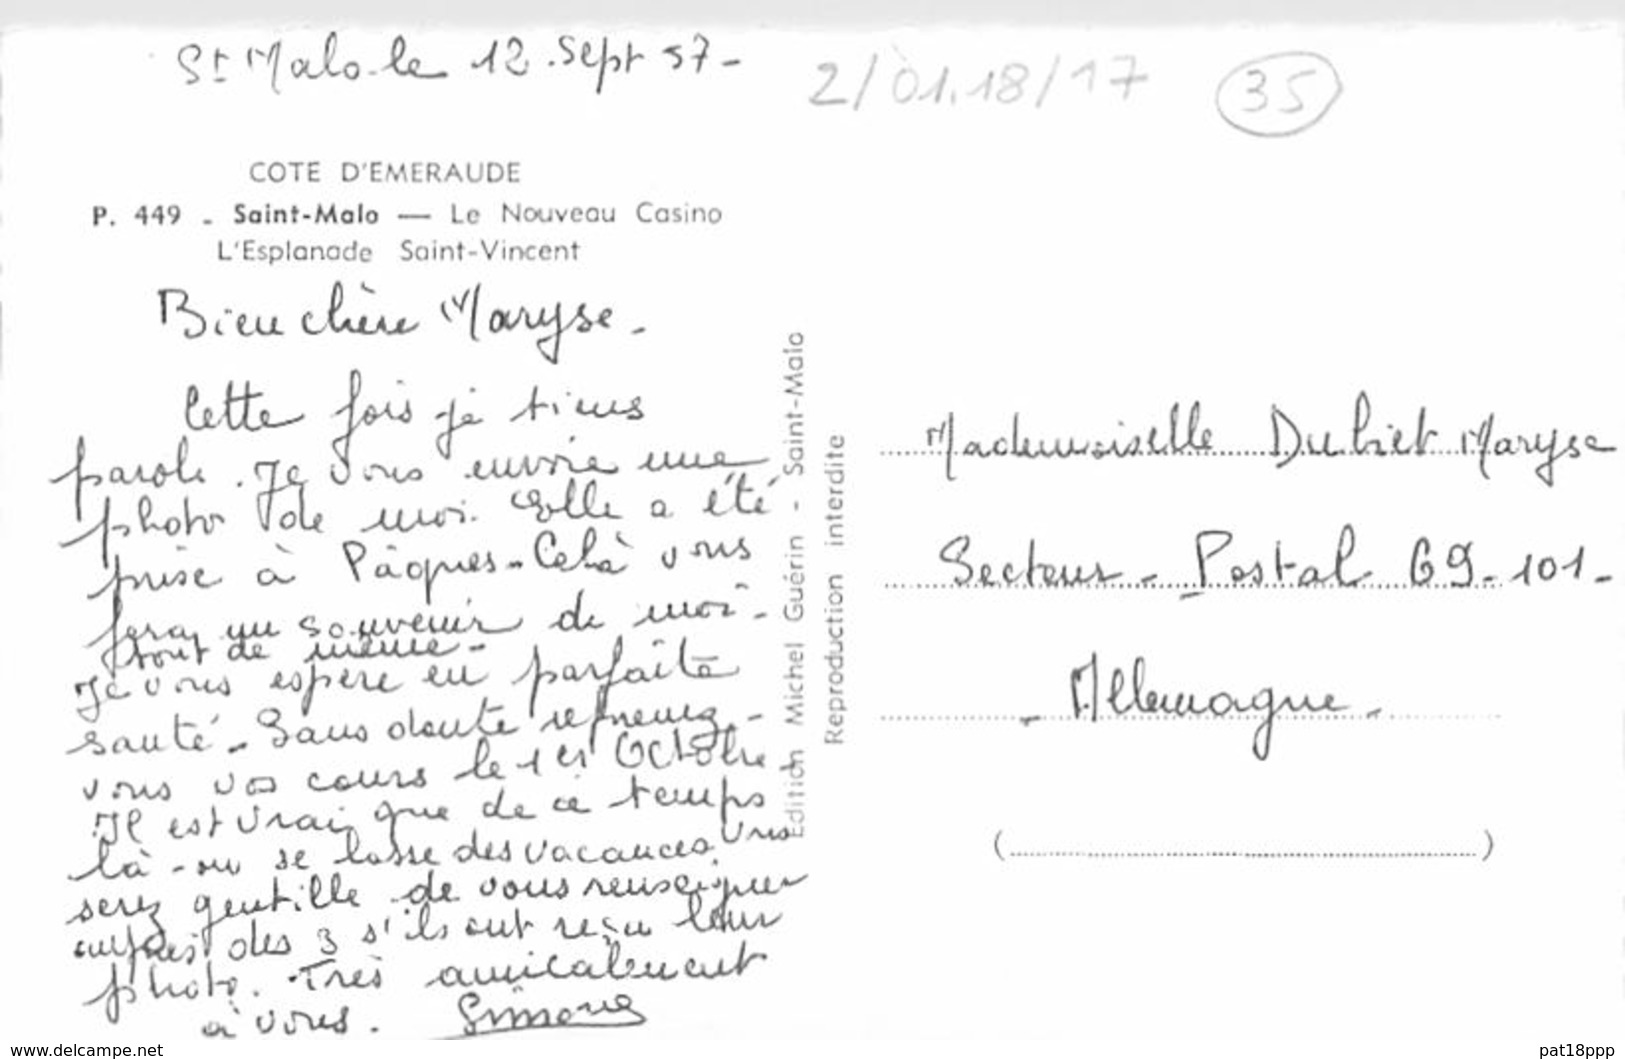 St Malo le 12 Sept 57 -
2/01.18/17
35
COTE D'EMERAUDE
P. 449 - Saint-Malo — Le Nouveau Casino
L'Esplanade Saint-Vincent
Bien chère Maryse -
Cette fois je tiens
parole. Je vous envoie une
photo de moi. Elle a été
prise à Pâques - Celà vous
fera un souvenir de moi -
tout de même -
Je vous espère en parfaite
santé - Sans doute reprenez-
vous vos cours le 1er Octobre
Il est vrai que de ce temps
là - on se lasse des vacances. Vous
serez gentille de vous renseigner
auprès des 3 s'ils ont reçu leur
photo. Très amicalement
à vous. Simone
Edition Michel Guérin - Saint-Malo
Reproduction interdite
Mademoiselle Dubiet Maryse
Secteur - Postal 69-101 -
- Allemagne -
(                    )
www.delcampe.net
pat18ppp